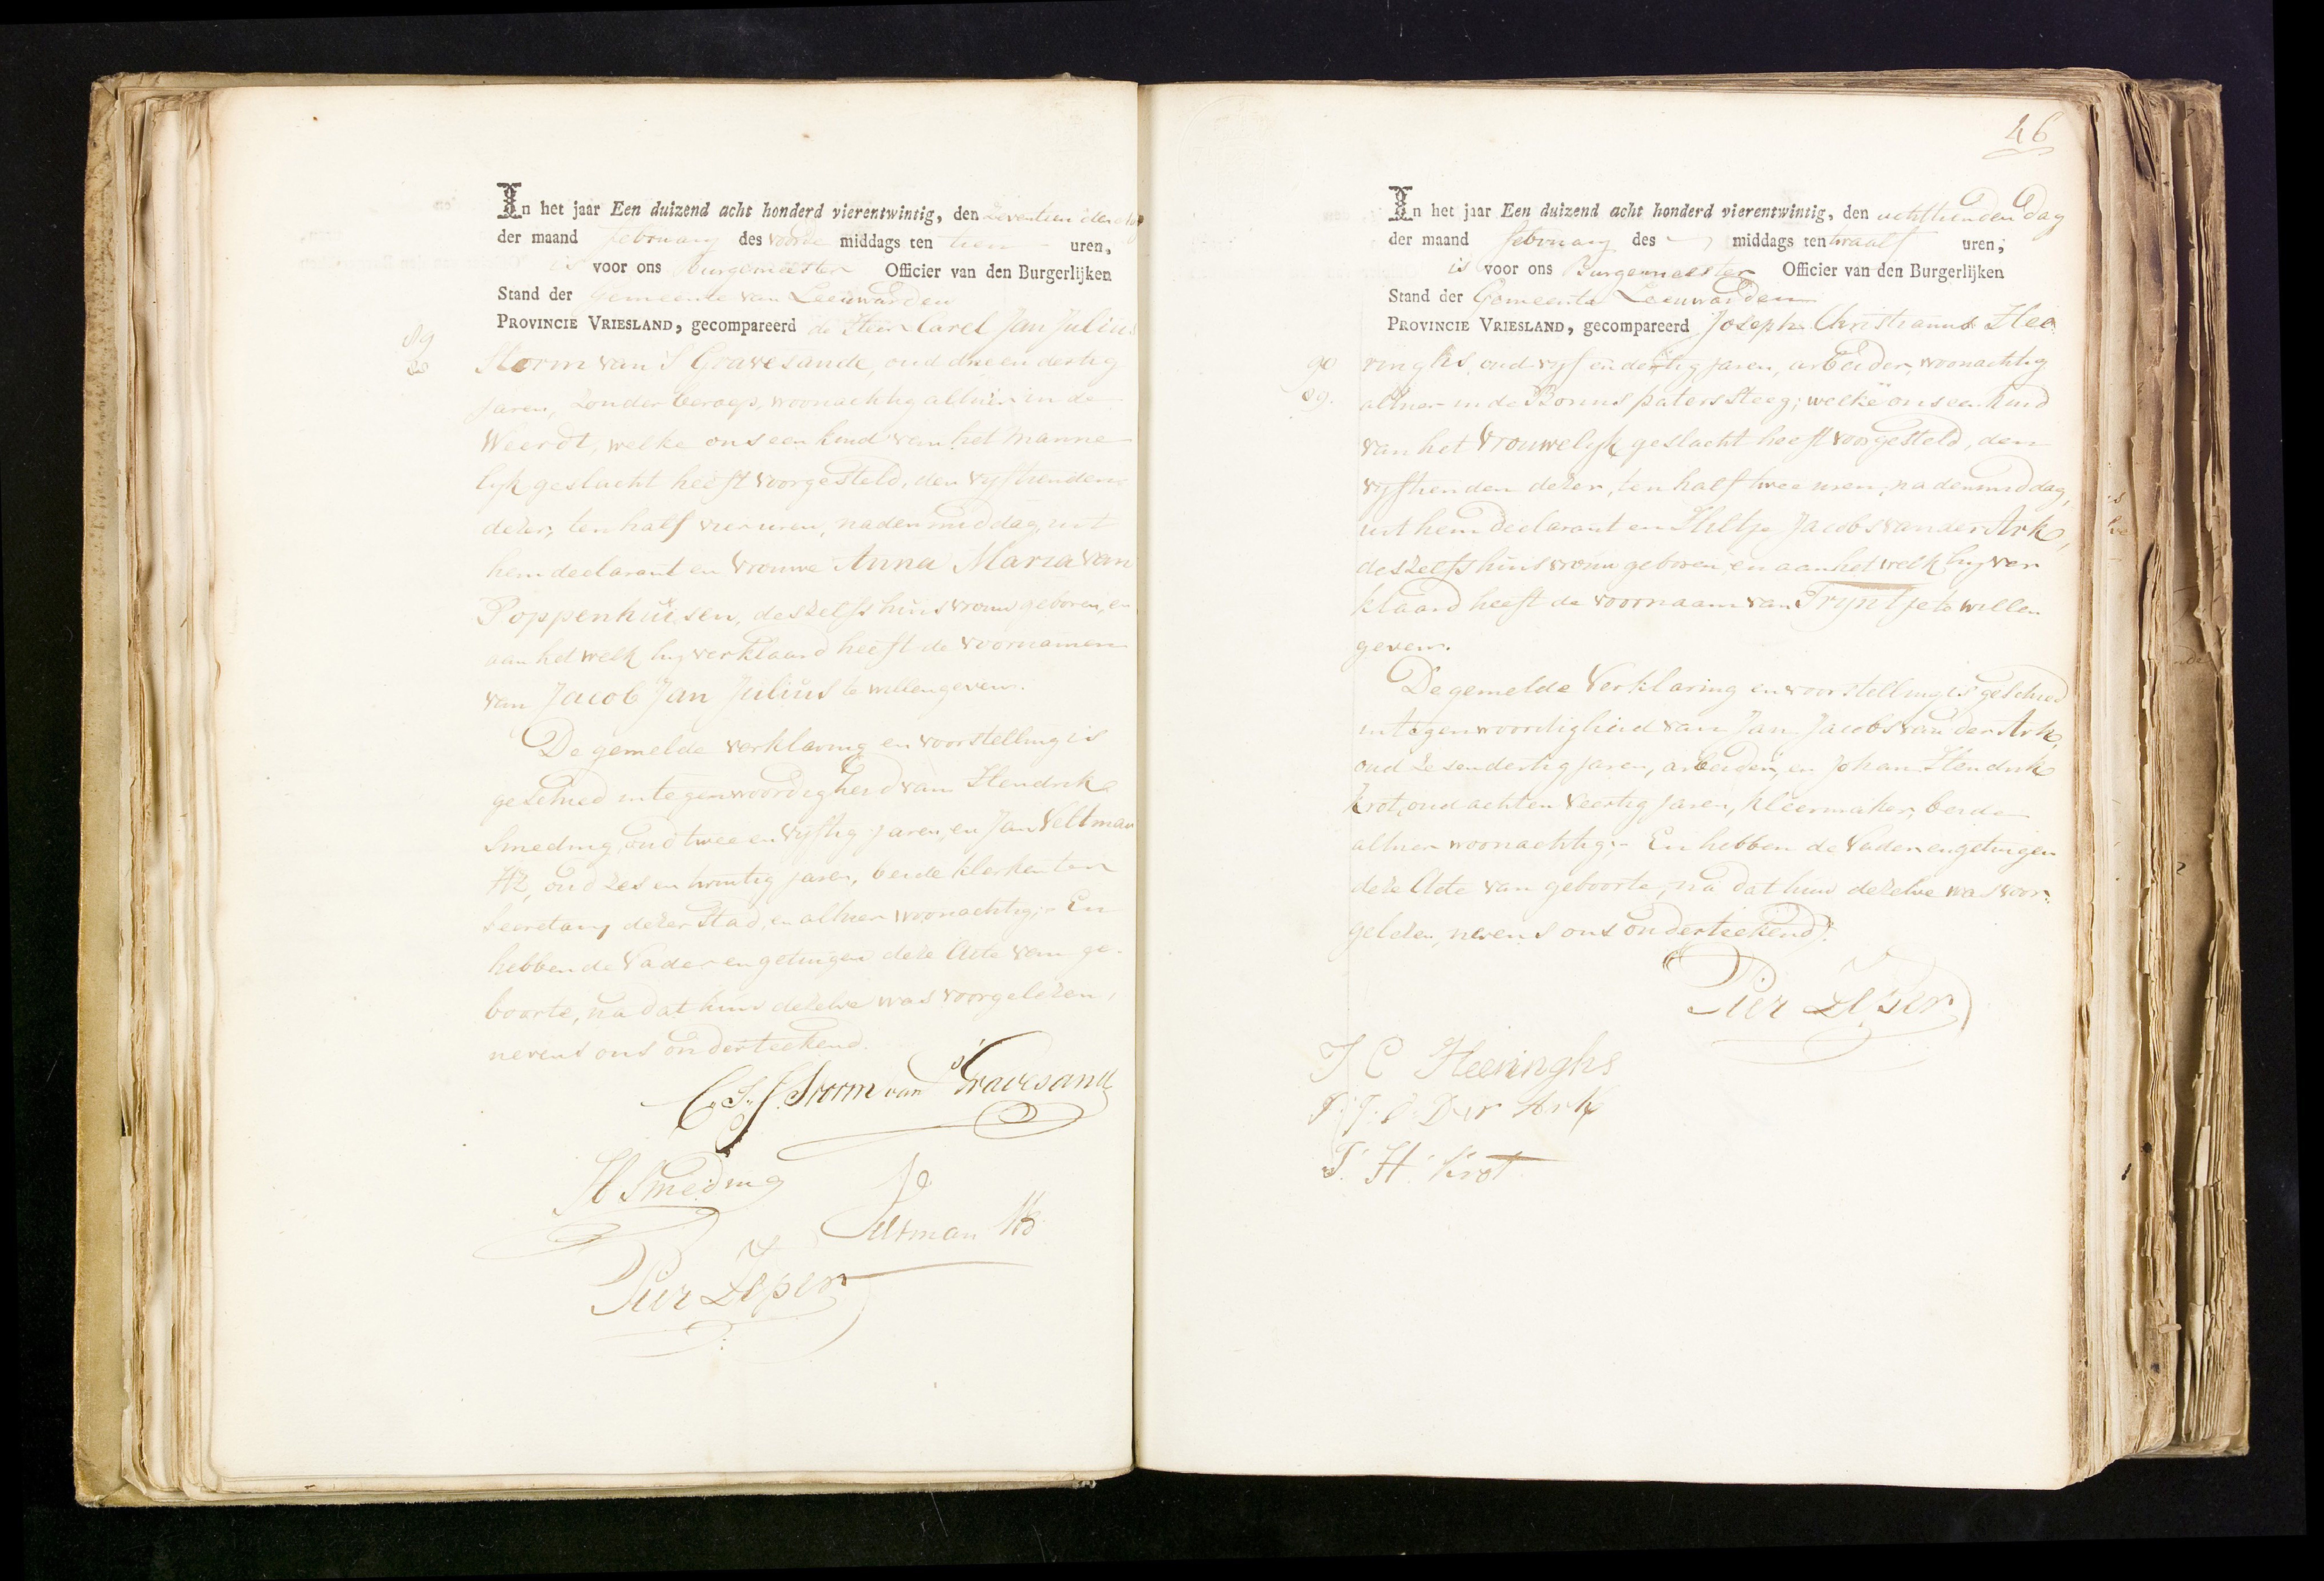 In het jaar Een duizend acht honderd vierentwintig, den zeventienden dag
der maand february des voorde middags ten tien uren,
is voor ons Burgemeester Officier van den Burgerlijken
Stand der Gemeente van Leeuwarden
PROVINCIE VRIESLAND, gecompareerd de Heer Carel Jan Julius
89
88
Storm van 's Gravesande, oud drie en dertig
jaren, zonder beroep, woonachtig alhier in de
Weerdt, welke ons een kind van het manne
lyk geslacht heeft voorgesteld, den vyftienden
dezer, ten half vier uren, naden middag, uit
hem declarant en vrouwe Anna Maria van
Poppenhuisen, deszelfs huisvrouw geboren, en
aan het welk hy verklaard heeft de voornamen
van Jacob Jan Julius te willen geven.
De gemelde verklaring en voorstelling is
geschied in tegenwoordigheid van Hendrik
Smeding, oud twee en vyftig jaren, en Jan Veltman
Hz, oud zes en twintig jaren, beide klerken ter
secretary dezer Stad, en alhier woonachtig;- En
hebben de Vader en getuigen deze Acte van ge-
boorte, na dat hun dezelve was voorgelezen,
nevens ons onderteekend.
C. J. J. Storm van 's Gravesande
H Smeding
J Veltman Hz
Pier Zeper
46
In het jaar Een duizend acht honderd vierentwintig, den achttienden dag
der maand february des middags ten twaalf uren,
is voor ons Burgemeester Officier van den Burgerlijken
Stand der Gemeente Leeuwarden
PROVINCIE VRIESLAND, gecompareerd Joseph Christianus Hee
90
89.
ringhs, oud vyf en dertig jaren, arbeider, woonachtig
alhier in de Bonus paters steeg; welke ons een kind
van het Vrouwelyk geslacht heeft voorgesteld, den
vyftienden dezer, ten half twee uren, na den middag,
uit hem declarant en Hiltje Jacobs van der Ark,
deszelfs huisvrouw geboren, en aan het welk hy ver
klaard heeft de voornaam van Tryntje te willen
geven.
De gemelde Verklaring en voorstelling is geschied
in tegenwoordigheid van Jan Jacobs van der Ark,
oud zesendertig jaren, arbeider, en Johan Hendrik
Krot, oud acht en veertig jaren, kleermaker, beide
alhier woonachtig;- En hebben de Vader en getuigen
deze Acte van geboorte, na dat hun dezelve was voor-
gelezen, nevens ons onderteekend.
Pier Zeper
J C Heeringhs
J. J. v. Der Ark
J. H. Krot